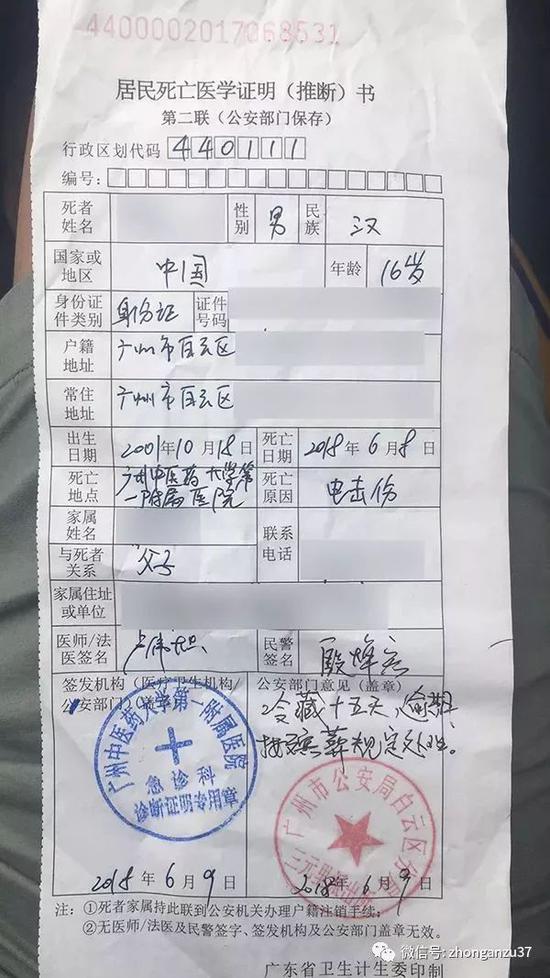 4400002017068531
居民死亡医学证明（推断）书
第二联（公安部门保存）
行政区划代码 440111
编号：
死者姓名 性别 男 民族 汉
国家或地区 中国 年龄 16岁
身份证件类别 身份证 证件号码
户籍地址 广州市白云区
常住地址 广州市白云区
出生日期 2001年10月18日 死亡日期 2018年6月8日
死亡地点 广州中医药大学第一附属医院 死亡原因 电击伤
家属姓名 联系电话
与死者关系 父子
家属住址或单位
医师/法医签名 民警签名
签发机构（医疗卫生机构/公安部门）（盖章） 公安部门意见（盖章）
冷藏十五天，逾期
按殡葬规定处理。
广州中医药大学第一附属医院
急诊科
诊断证明专用章
广州市公安局白云区分局
2018年6月9日 2018年6月9日
注：①死者家属持此联到公安机关办理户籍注销手续；
②无医师/法医及民警签字、签发机构及公安部门盖章无效。
广东省卫生计生委印制
微信号：zhonganzu37